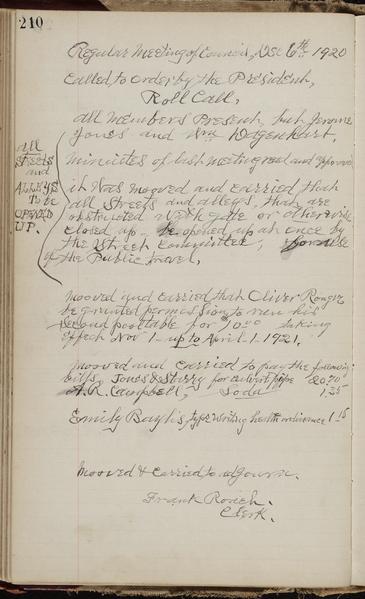 210
Regular Meeting of Council, Dec 6th 1920
Called to Order by the President,
Roll Call,
all Members Present, but Jerome
Jones and Wm Dagenhart.
all
Streets
and
ALLEYS
to be
OPENED
UP.
minutes of last meeting read and approved
it was mooved and carried that
all streets and alleys, that are
obstructed with gate or otherwise
closed up be opened up at once by
the Street Committee, for use
of the Public travel,
mooved and carried that Oliver
be granted permission to run his
second pooltable for $10.00 taking
effect Nov 1 up to April 1. 1921.
mooved and carried to pay the following
bills, Jones & for culvert pipe 20.70
A.R. Campbell, Soda 1.25
Emily type writing health ordinance 1.15
Mooved & Carried to adjourn.
Frank
Clerk.